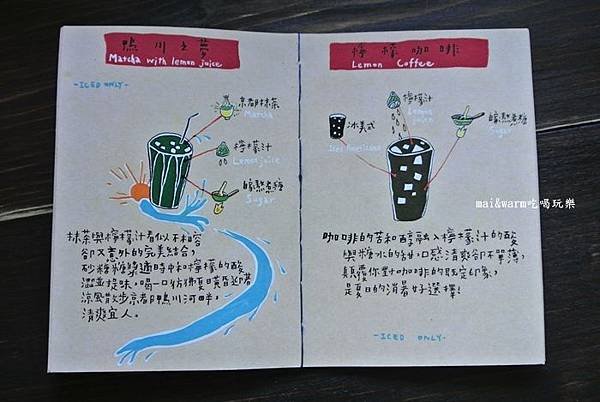 鴨川之夢
Matcha with lemon juice
-ICED ONLY-
京都抹茶
Matcha
檸檬汁
Lemon juice
Sugar
抹茶與檸檬汁看似不相容
卻又意外的完美結合,
澀並提味,喝一口彷彿夏日黃昏迎著
涼風散步京都鴨川河畔,
清爽宜人。
檸檬咖啡
Lemon Coffee
冰美式
Iced Americano
檸檬汁
Lemon juice
Sugar
咖啡的苦和醇融入檸檬汁的酸
與糖水的甜,口感清爽卻不單薄,
顛覆你對咖啡的既定印象,
是夏日的消暑好選擇!
-ICED ONLY-
mai&warm吃喝玩樂